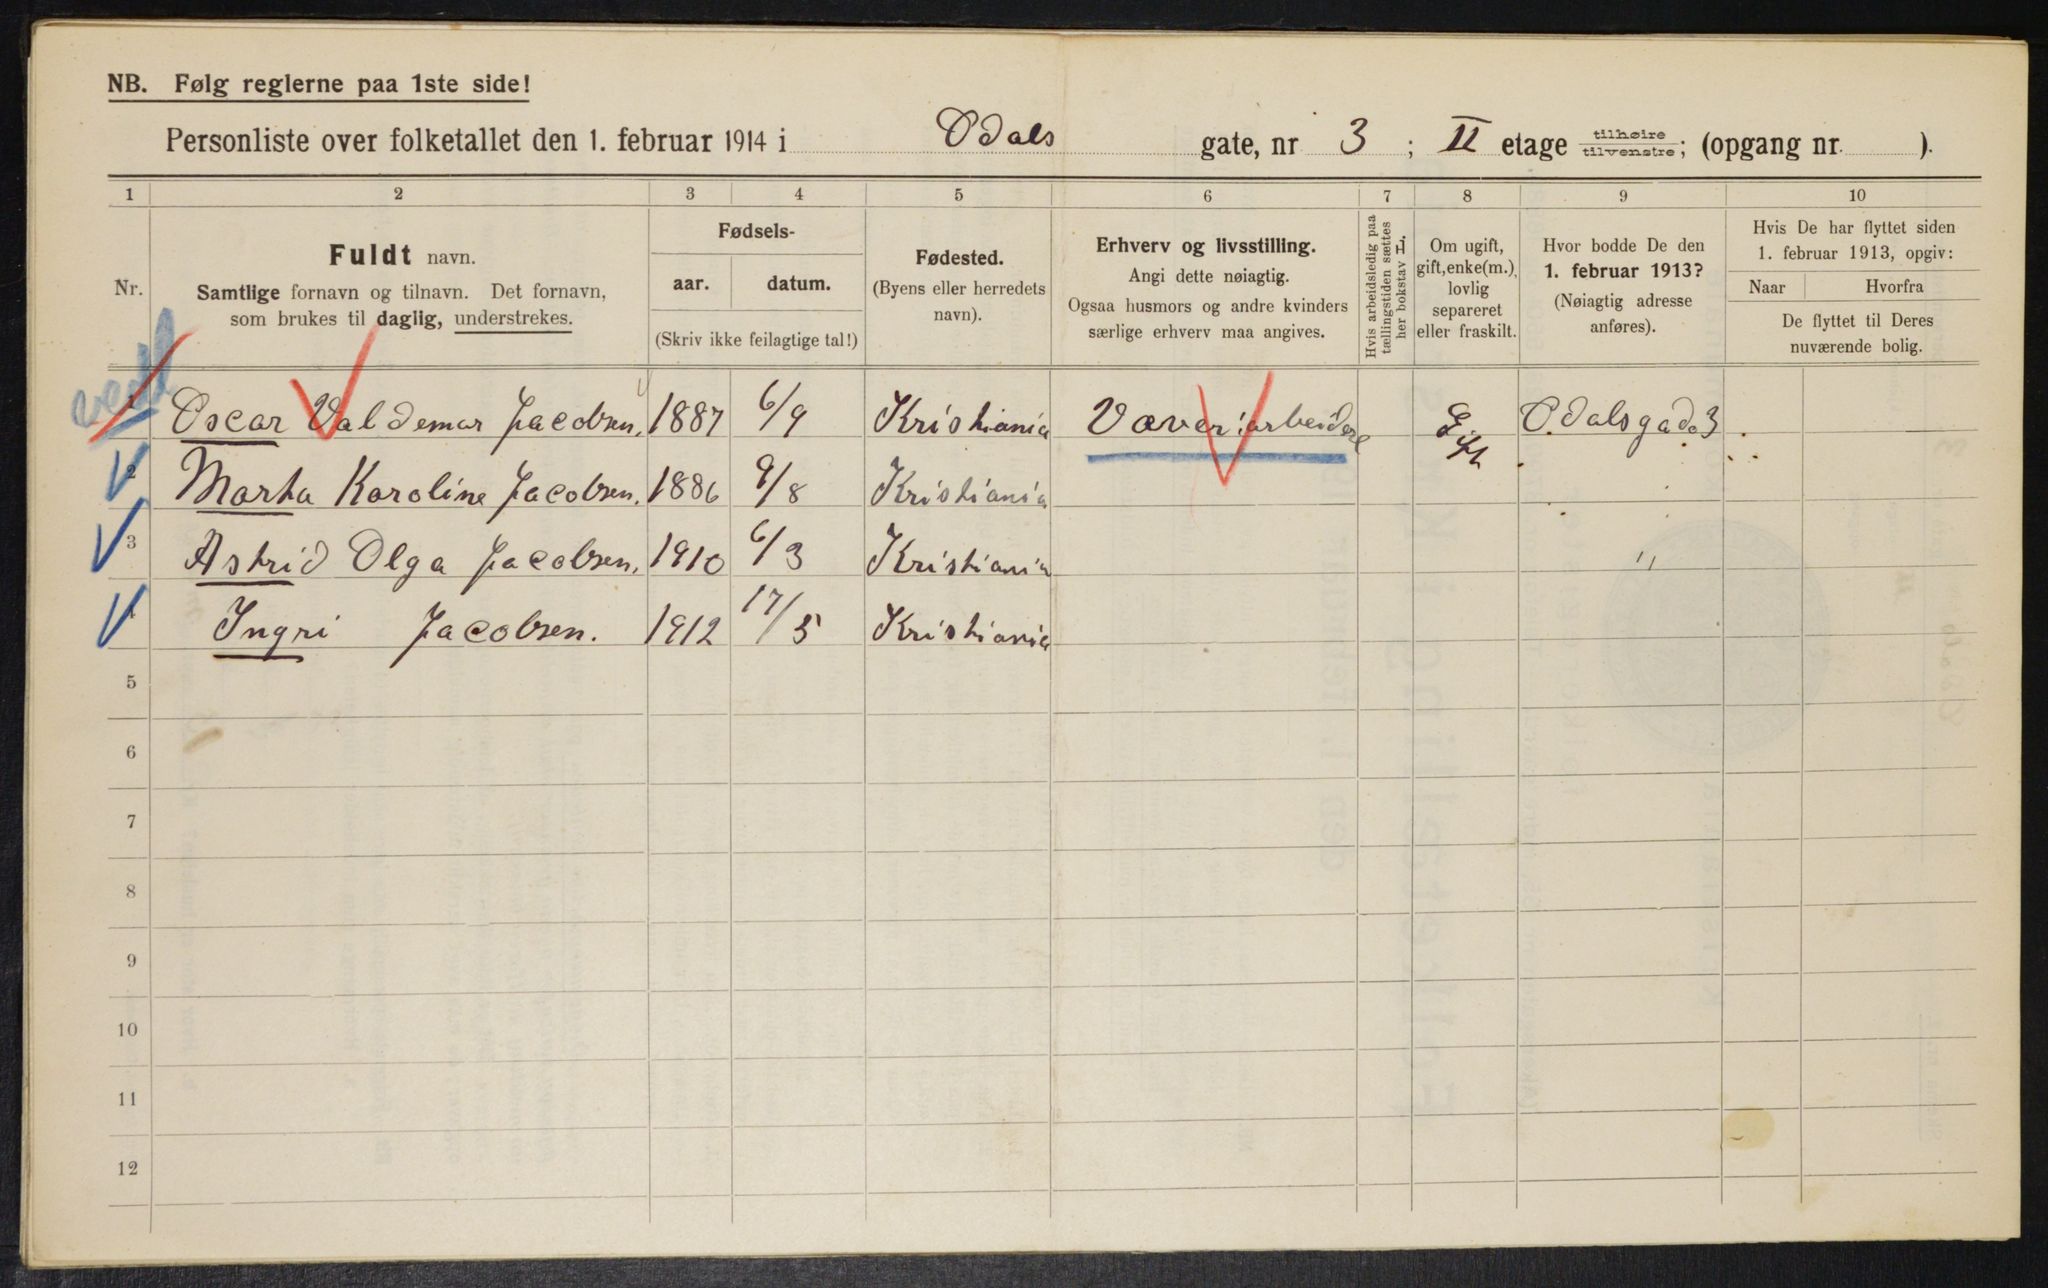 NB. Følg reglerne paa 1ste side!
Personliste over folketallet den 1. februar 1914 i Odals gate, nr 3; II etage tilhøire tilvenstre; (opgang nr. ).
1 2 3 4 5 6 7 8 9 10
Nr.
Fuldt navn.
Samtlige fornavn og tilnavn. Det fornavn,
som brukes til daglig, understrekes.
Fødsels-
aar. datum.
(Skriv ikke feilagtige tal!)
Fødested.
(Byens eller herredets
navn).
Erhverv og livsstilling.
Angi dette nøiagtig.
Ogsaa husmors og andre kvinders
særlige erhverv maa angives.
Hvis arbeidsledig paa
tællingstiden sættes
her bokstav L.
Om ugift,
gift, enke(m.),
lovlig
separeret
eller fraskilt.
Hvor bodde De den
1. februar 1913?
(Nøiagtig adresse
anføres).
Hvis De har flyttet siden
1. februar 1913, opgiv:
Naar Hvorfra
De flyttet til Deres
nuværende bolig.
1 Oscar Valdemar Jacobsen, 1887 6/9 Kristiania Væveriarbeidere Gift Odalsgade 3
2 Marha Karoline Jacobsen. 1886 9/8 Kristiania
3 Astrid Olga Jacobsen. 1910 6/3 Kristiania "
4 Ingri Jacobsen. 1912 17/5 Kristiania
5
6
7
8
9
10
11
12